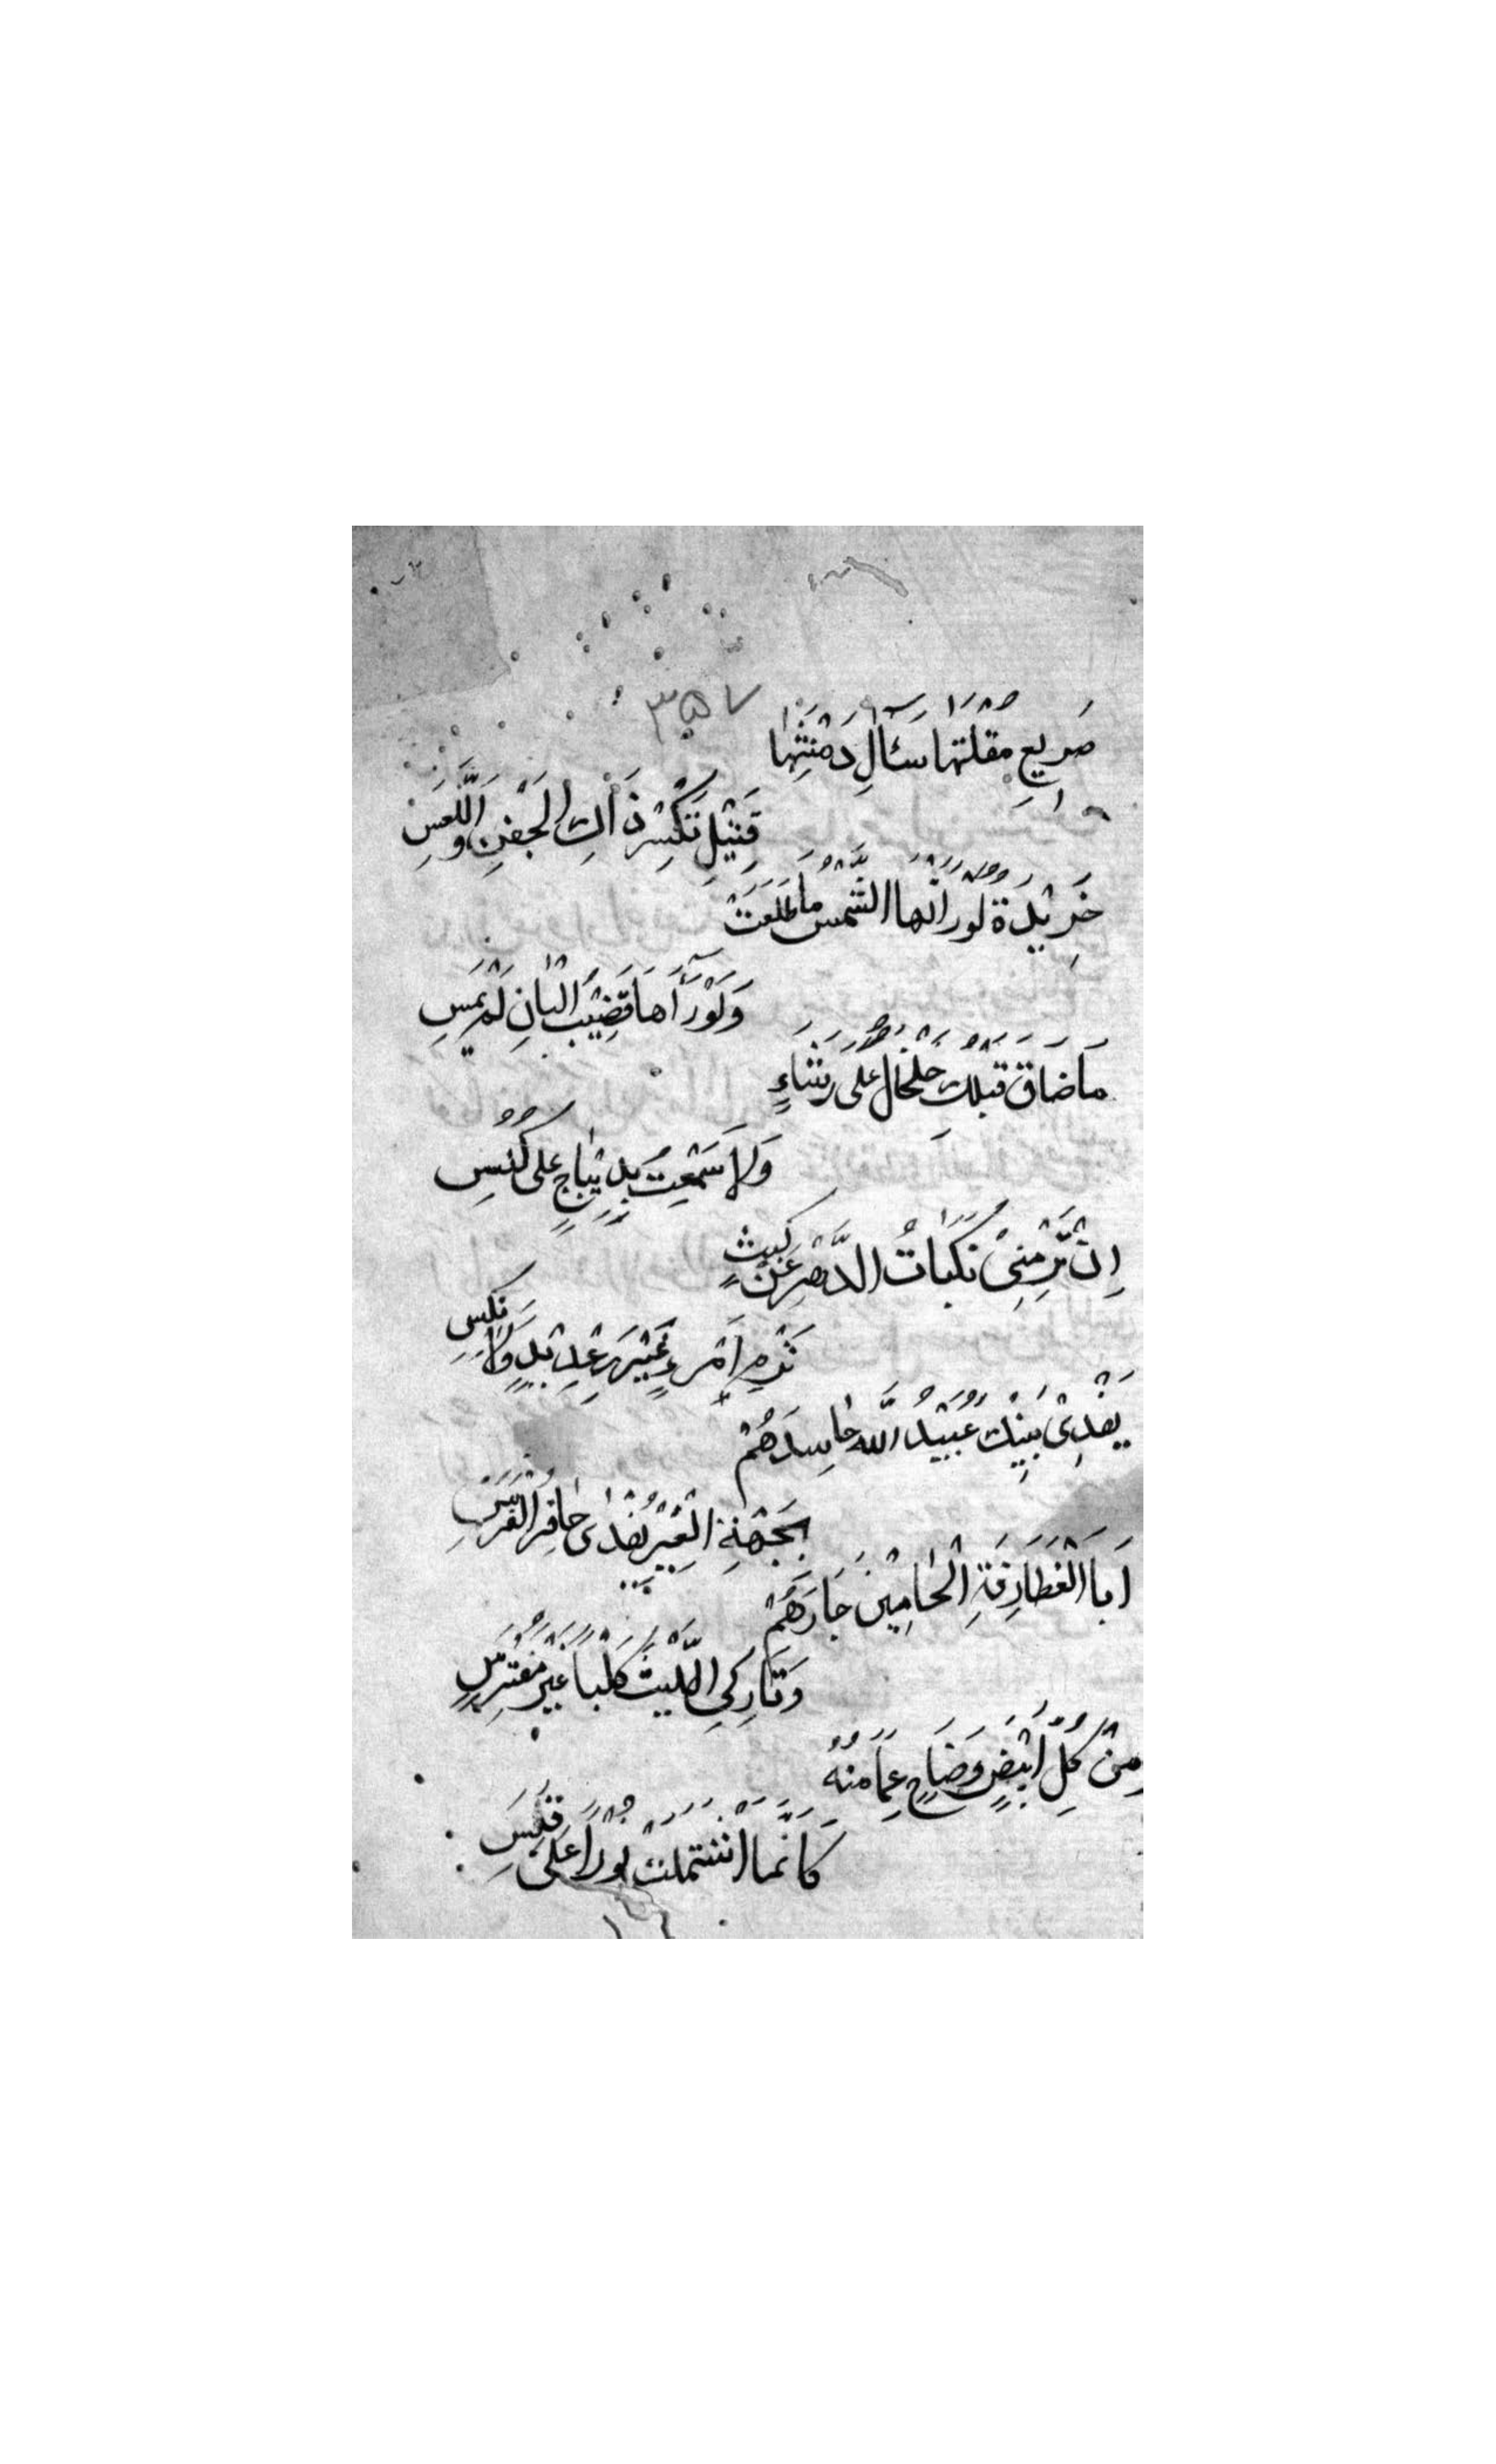 ٣٥٧
صَرِيعِ مقْلَتِهَا سَئَّالِ دِمْنَتِهَا
قَتِيْلِ تَكْسِيْرِ ذَاكَ الْجَفْنِ وَاللَّعَسِ
خَرِيْدَةٌ لَوْ رَأَتْهَا الشَّمْسُ مَا طَلَعَتْ
وَلَوْ رَآهَا قَضِيْبُ الْبَانِ لَمْ يَمِسِ
مَا ضَاقَ قَبْلَكِ خَلْخَالٌ عَلَى رَشَاءٍ
وَلَا سَمِعْتُ بِدِيْبَاجٍ عَلَى كُنُسِ
اِنْ تَرْمِنِيْ نَكَبَاتُ الدَّهْرِ عَنْ كَثَبٍ
تَرْمِ امْرَءٍ غَيْرَ رِعْدِيْدٍ وَلَا نِكِسِ
يَفْدِيْ بَنِيْكَ عُبَيْدُ اللّٰهِ حَاسِدَهُمْ
بِجَبْهَةِ الْعَيْرِ يُفْدٰى حَافِرُ الْفَرَسِ
اَبَا الْغَطَارِفَةِ الْحَامِيْنَ جَارَهُمْ
وَتَارِكِي اللَّيْثَ كَلْباً غَيْرَ مُفْتَرِسٍ
مِنْ كُلِّ اَبْيَضَ وَضَّاحٍ عِمَامَتُهُ
كَاَنَّمَا اشْتَمَلَتْ نُوْراً عَلٰى قَبَسِ